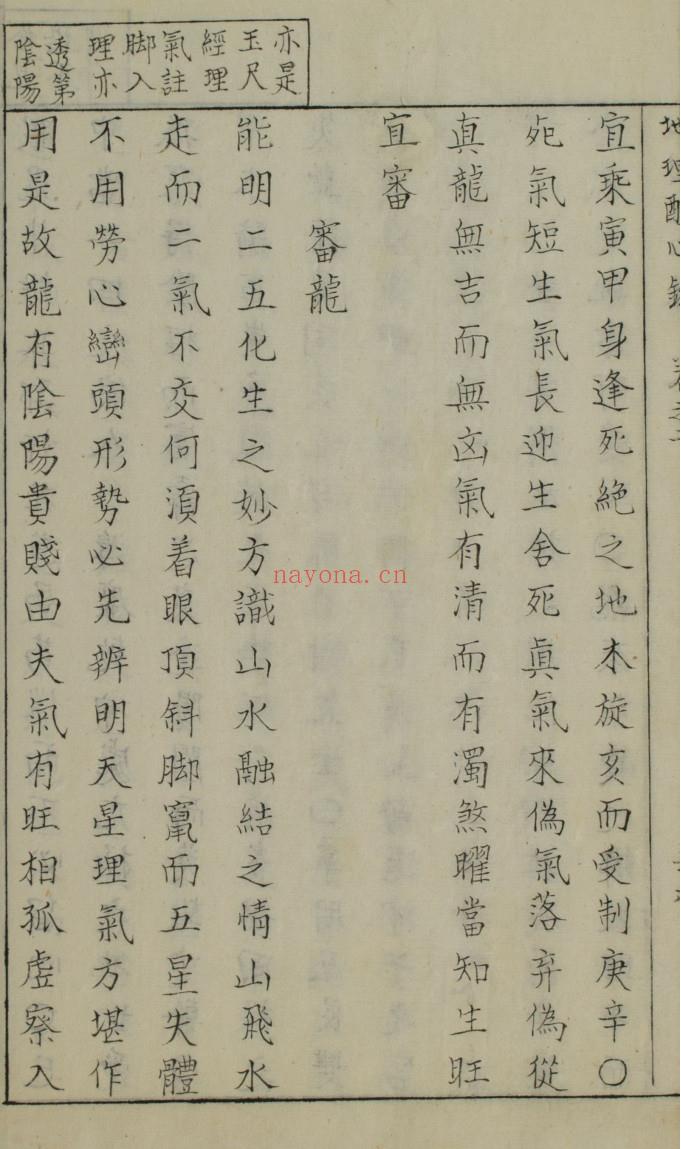 地理心錄
宜乘寅甲身逢死絶之地木旋亥而受制庚辛〇
死氣短生氣長迎生舍死眞氣來偽氣落弃偽從
真龍無吉而無凶氣有清而有濁煞曜當知生旺
宜審
審龍
能明二五化生之妙方識山水融結之情山飛水
走而二氣不交何須着眼頂斜脚竄而五星失體
不用勞心巒頭形勢必先辨明天星理氣方堪作
用是故龍有陰陽貴賤由夫氣有旺相孤虛察入
亦是
玉尺
經理
氣註
脚入
理亦
透第
陰陽
nayona.cn